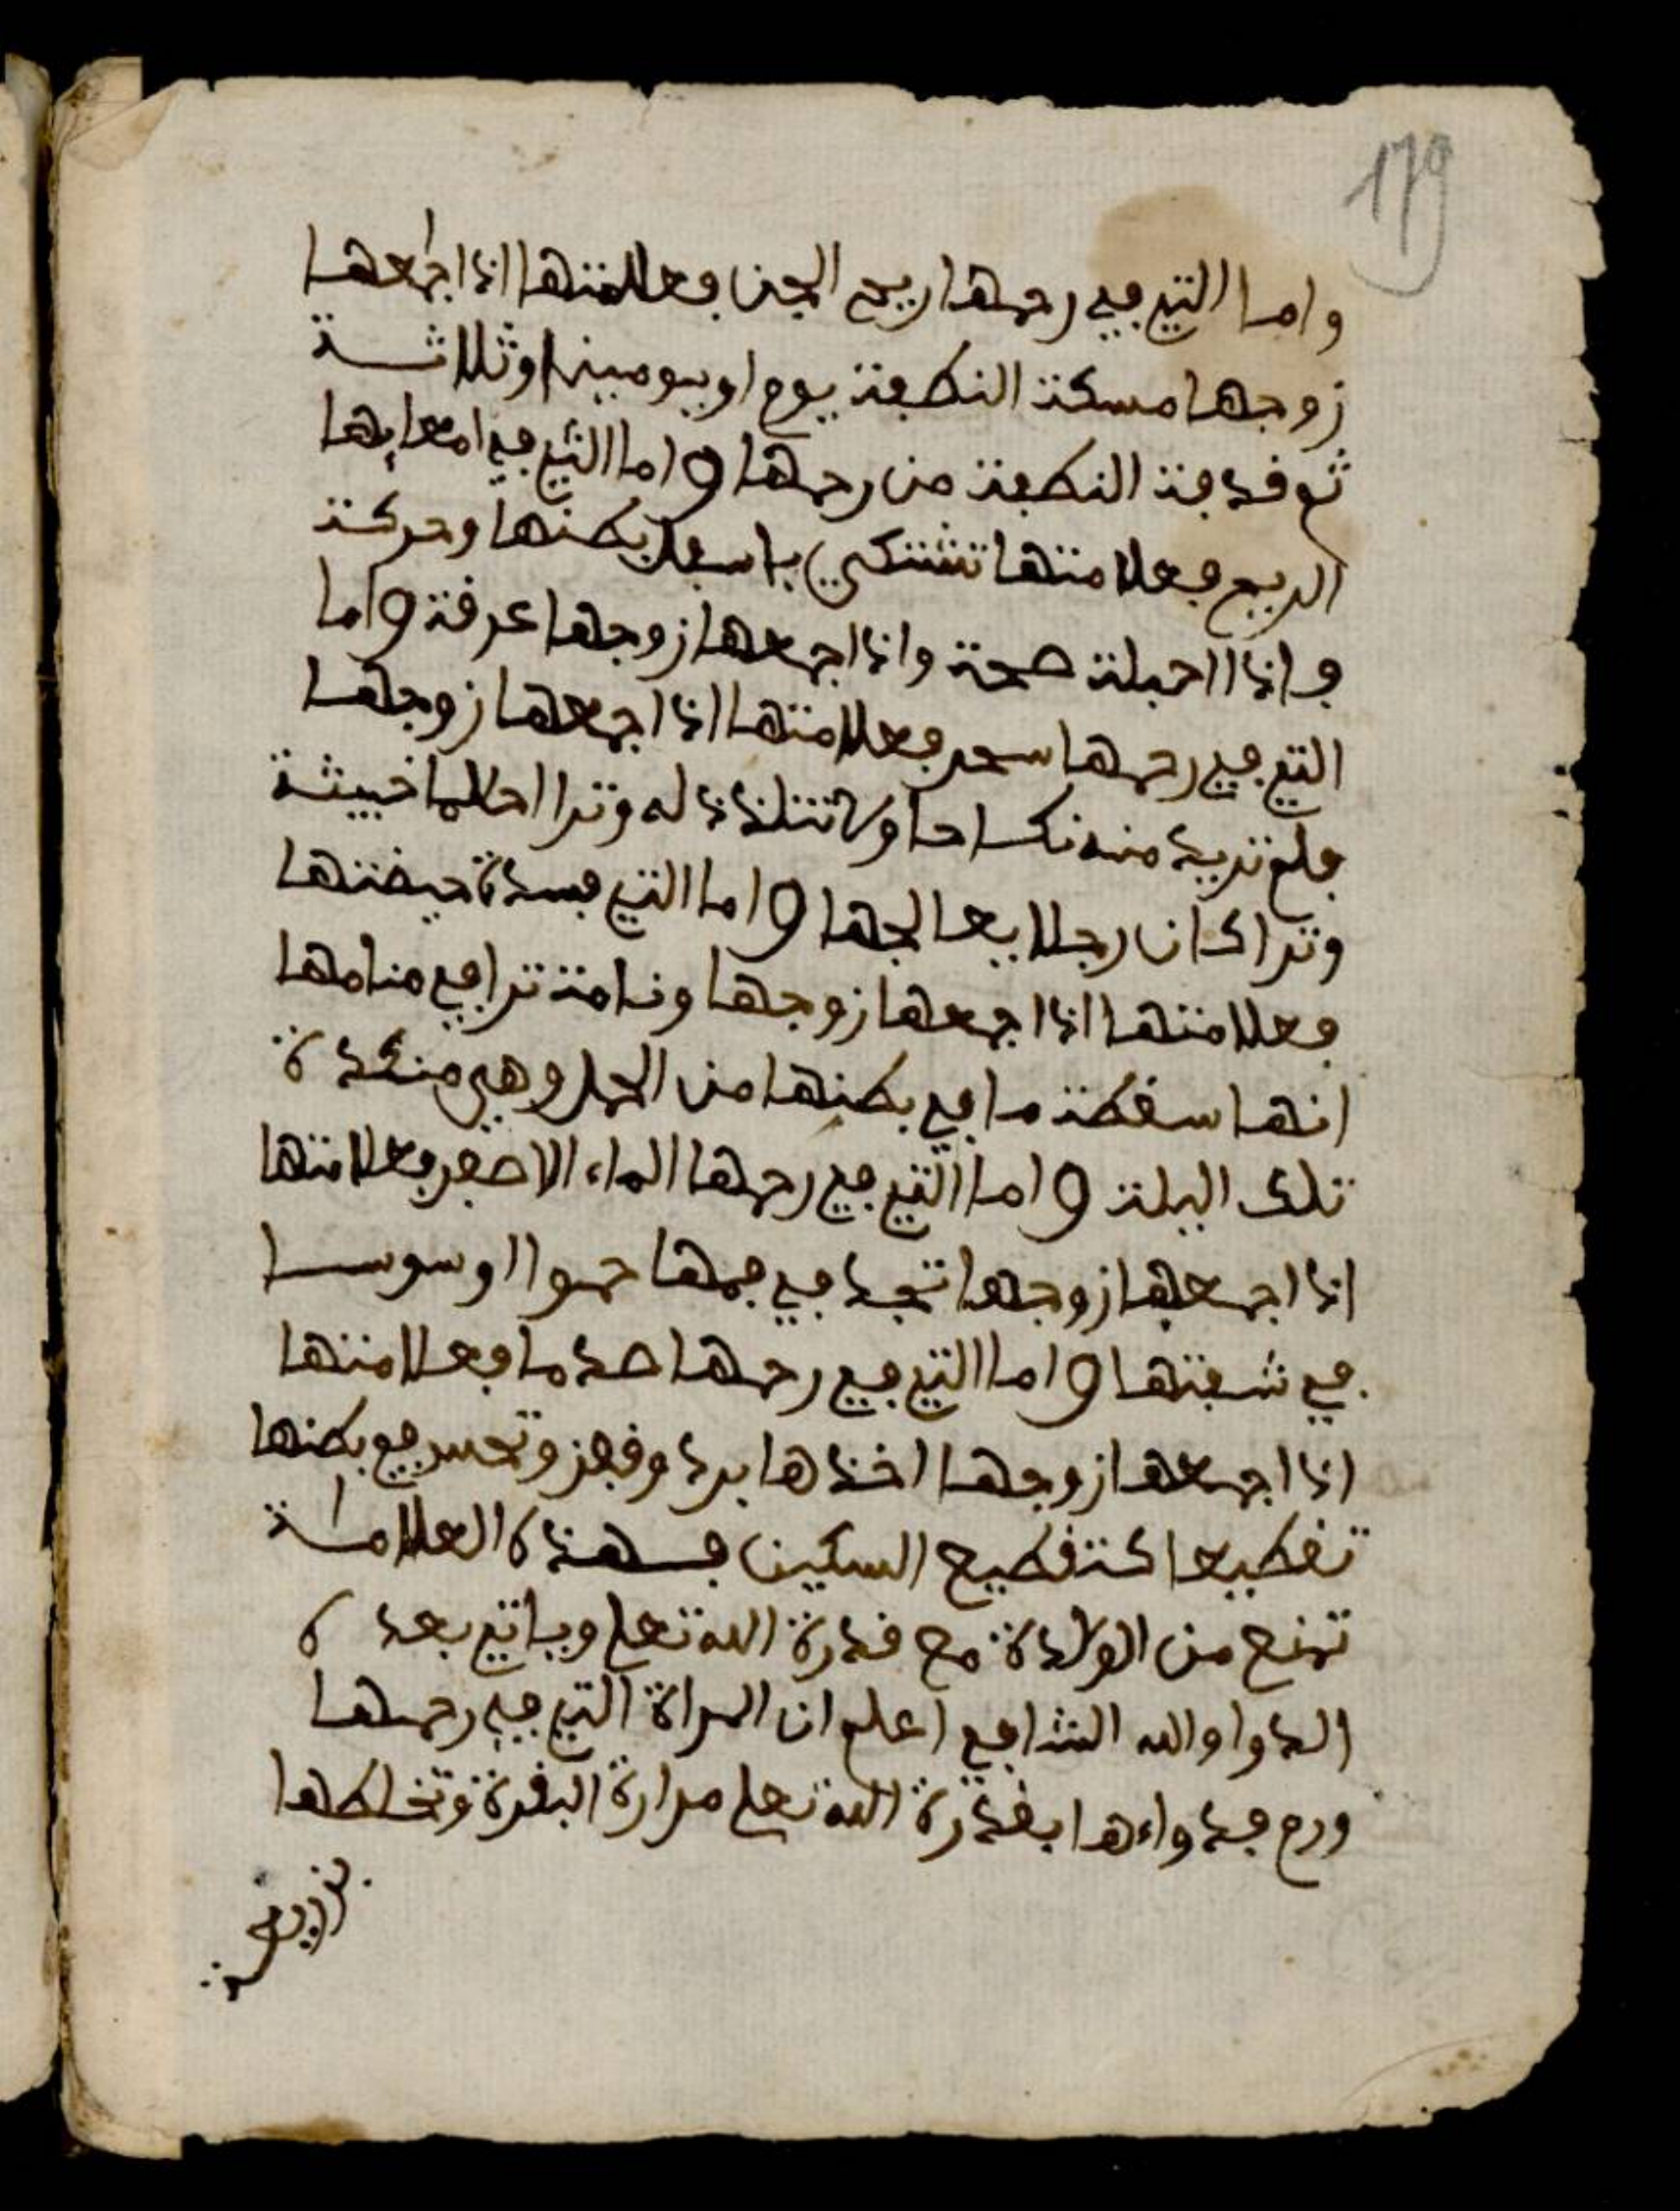 179
واما التي في رحمها ريح الجن فعلامتها اذا اجمعها
زوجها مسكت النطفة يوم او يومين او ثلاثة
ثم قدفت النطفة من رحمها واما التي في امعايها
الريح فعلامتها تشتكي باسفل بطنها وحركت
واذا احبلت صحت واذا اجمعها زوجها عرفت واما
التي في رحمها سحر فعلامتها اذا اجمعها زوجها
فلم تريد منه نكاحا ولا تتلذذ له وترا احلاما خبيثة
وترا كان رجلا يعالجها واما التي فسدة حيضتها
فعلامتها اذا اجمعها زوجها ونامت ترا في منامها
انها سقطت ما في بطنها من الحمل وهي منكدة
تلك اليلة واما التي في رحمها الماء الاصفر فعلامتها
اذا اجمعها زوجها تجد في فمها حموا او سوسا
في شفتها واما التي في رحمها صدما فعلامتها
اذا اجمعها زوجها اخذها برد وقهز وتحس في بطنها
تقطيعا كتقطيع السكين فهذه العلامة
تمنع من الولادة مع قدرة الله تعلى وياتي بعده
الدوا والله الشافي اعلم ان المراة التي في رحمها
ورم فدواءها بقدرة الله تعلى مرارة البقرة وتخلطها